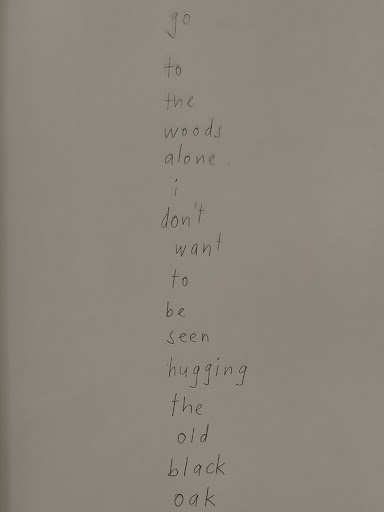 go
to
the
woods
alone.
i
don't
want
to
be
seen
hugging
the
old
black
oak